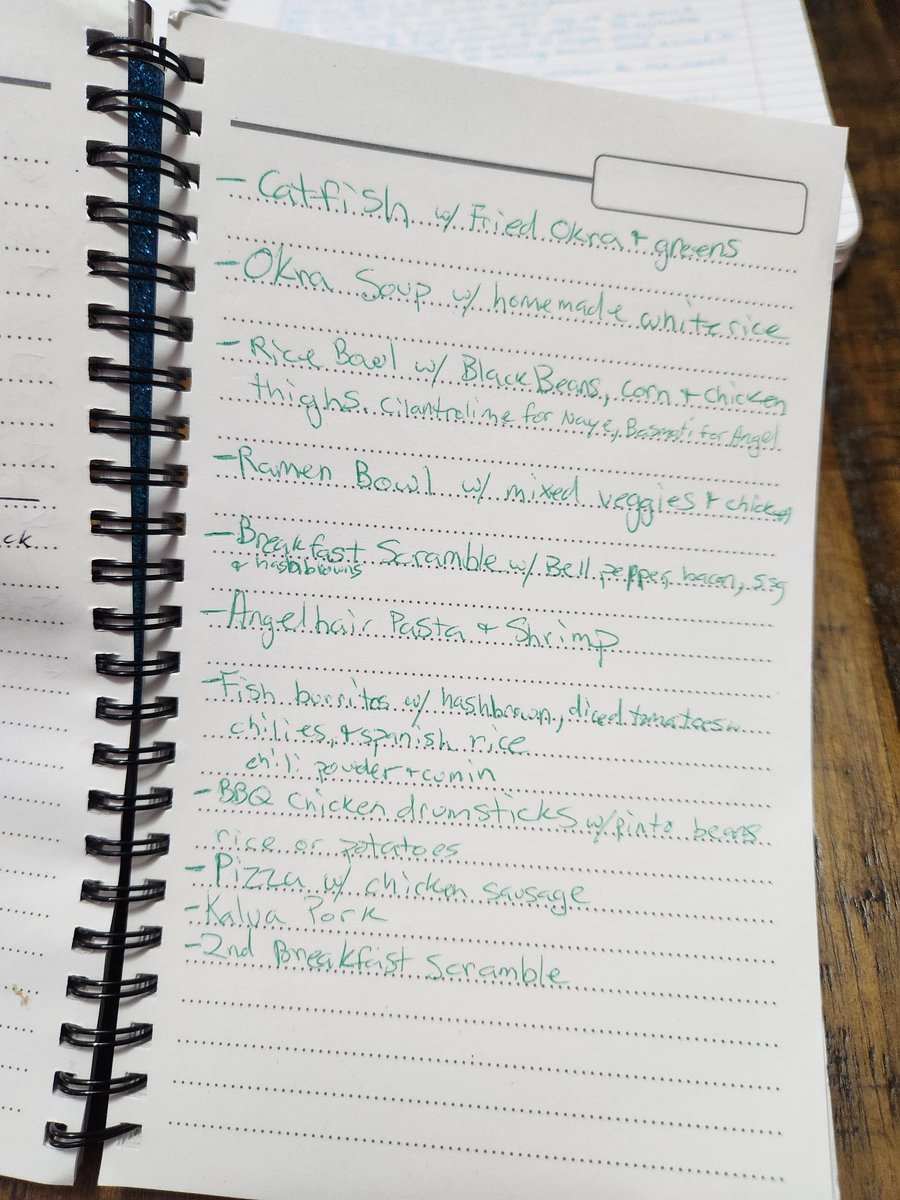 - Catfish w/ Fried Okra + greens
- Okra Soup w/ homemade white rice
- Rice Bowl w/ Black Beans, corn + chicken
thighs. Cilantro lime for Naye, Basmati for Angel
- Ramen Bowl w/ mixed veggies + chicken
- Breakfast Scramble w/ Bell pepper, bacon,
+ hashbrowns
- Angelhair Pasta + Shrimp
- Fish burritos w/ hashbrown, diced tomatoes w
chilies, + spanish rice
chili powder + cumin
- BBQ chicken drumsticks w/ pinto beans
rice or potatoes
- Pizza w/ chicken sausage
- Kalua Pork
- 2nd Breakfast Scramble
ck